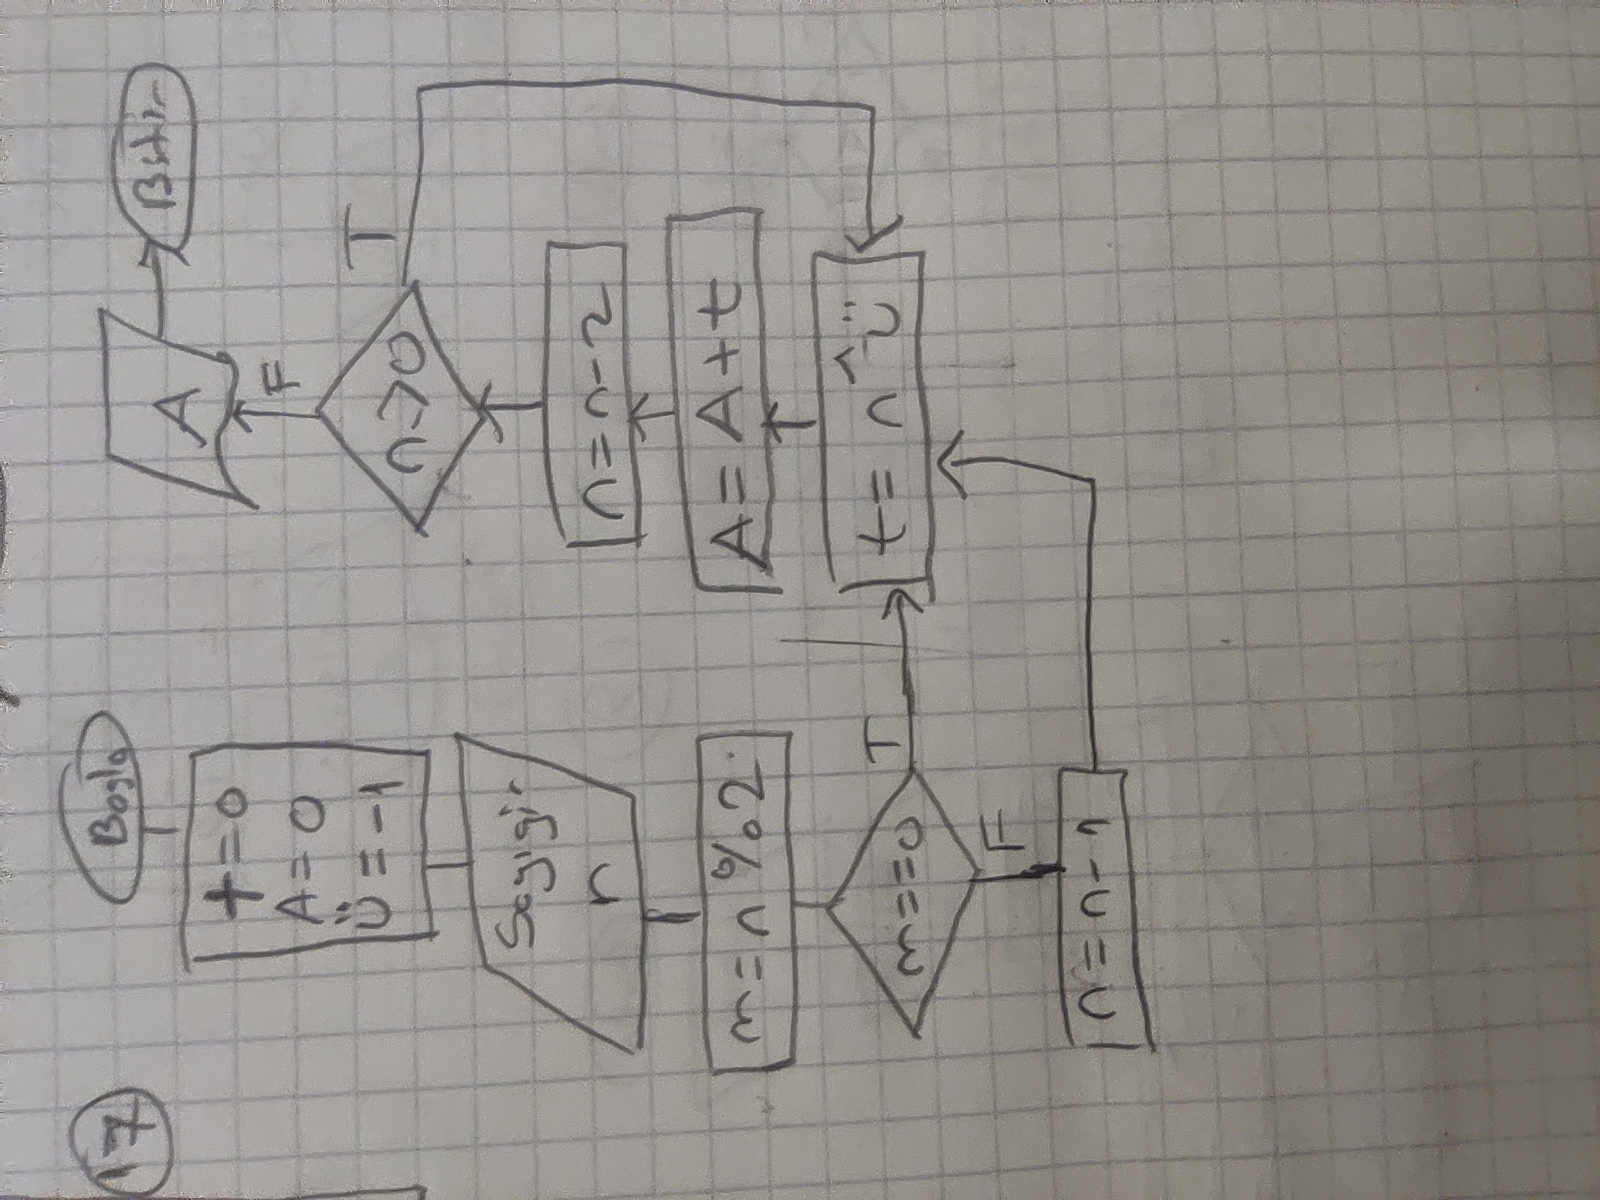 17
Başla
t=0
A=0
Ü=-1
Sayı gir
n
m=n%2
m==0
T
F
n=n-1
t=n^Ü
A=A+t
n=n-2
n>0
T
F
A
Bitir